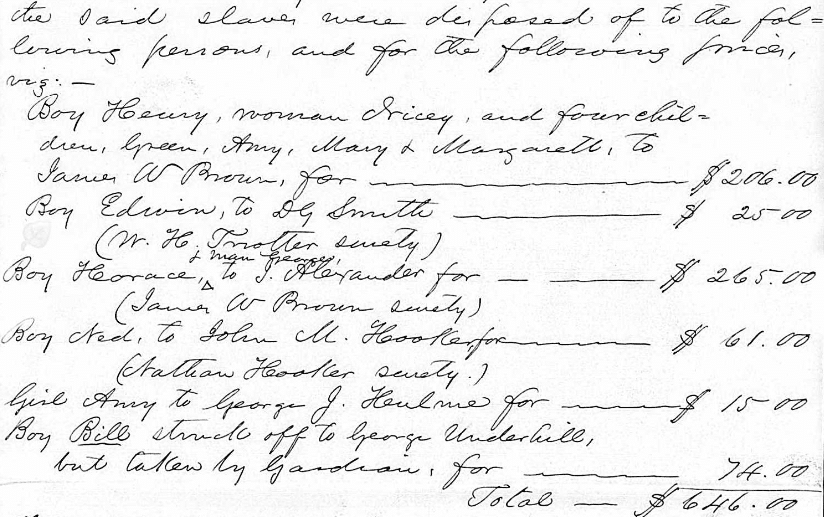 the said slaves were disposed of to the fol=
lowing persons, and for the following prices,
viz: —
Boy Henry, woman Dicey, and four chil=
dren, Green, Amy, Mary & Margarett, to
James W Brown, for — $206.00
Boy Edwin, to DG Smith — $ 25 00
(W. H. Trotter surety)
& man George,
Boy Horace, to J. Alexander for — — $ 265.00
(James W Brown surety)
Boy Ned, to John M. Hooker for — $ 61.00
(Nathan Hooker surety.)
Girl Amy to George J. Hulme for — $ 15 00
Boy Bill struck off to George Underhill,
but taken by Gardian, for — 74.00
Total — $ 646.00